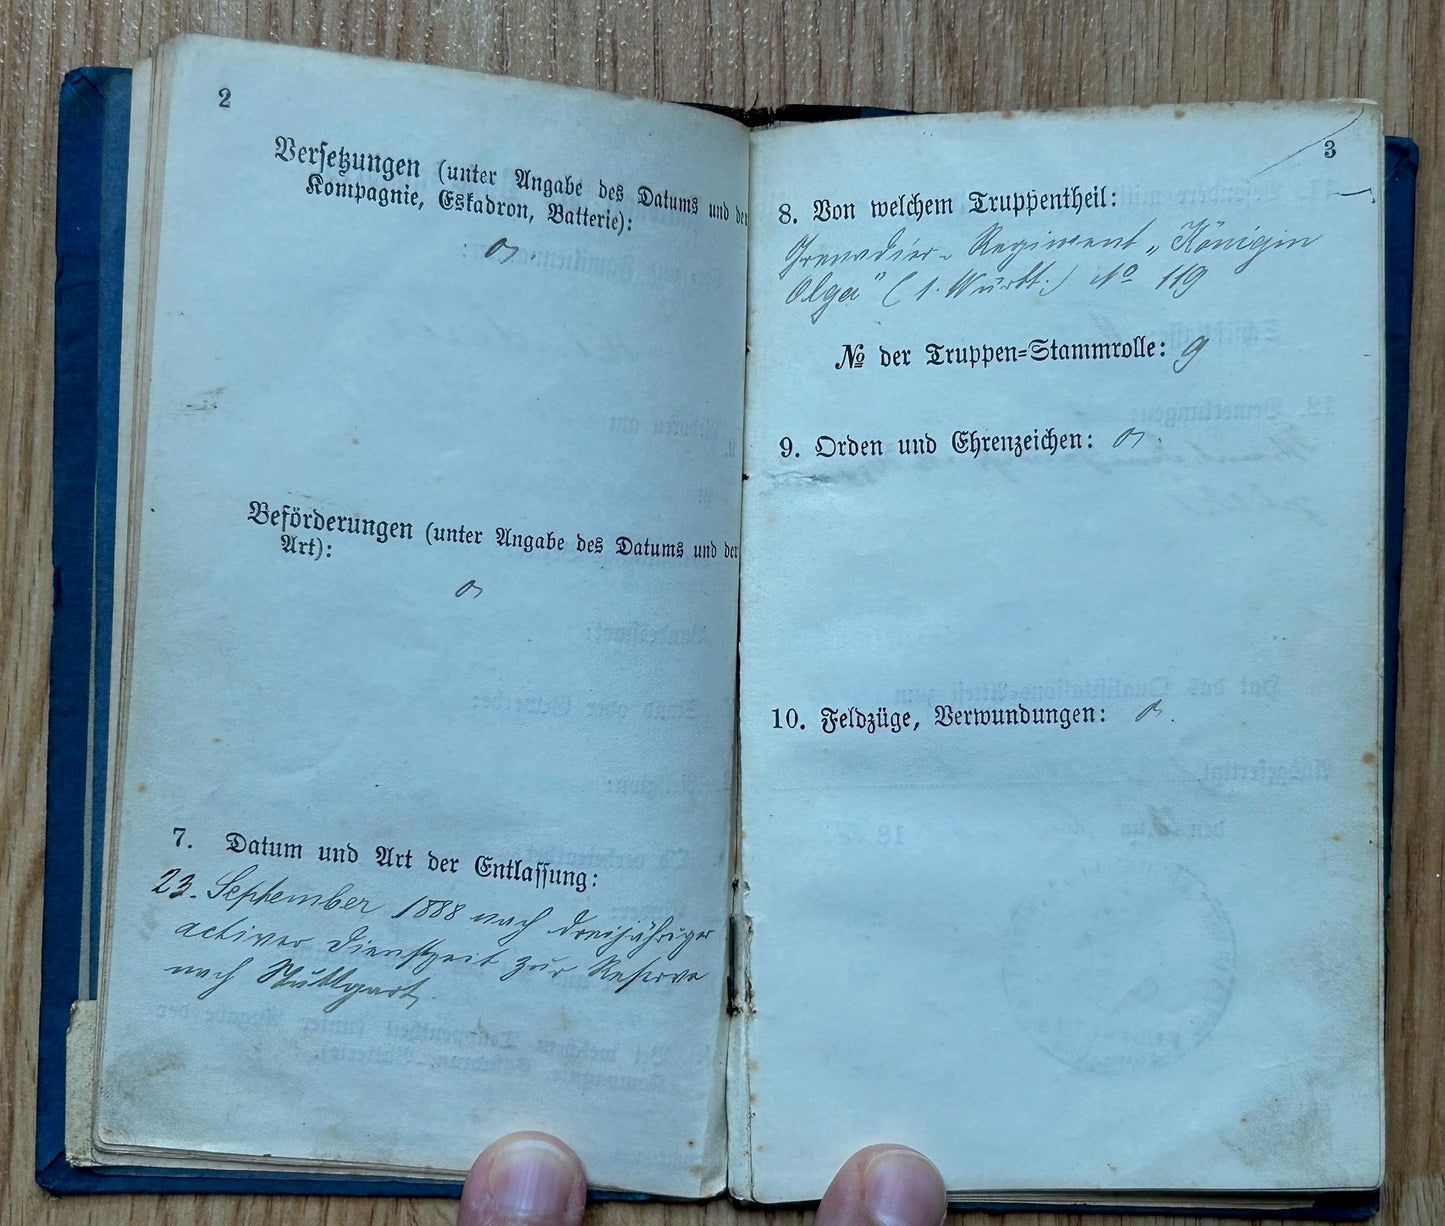 2
Versetzungen (unter Angabe des Datums und der
Kompagnie, Eskadron, Batterie):
Beförderungen (unter Angabe des Datums und der
Art):
7. Datum und Art der Entlassung:
23. September 1888 nach dreijähriger
activer Dienstzeit zur Reserve
nach Stuttgart.
3
8. Von welchem Truppentheil:
Grenadier-Regiment „Königin
Olga" (1. Württ.) No 119
No der Truppen-Stammrolle: 9
9. Orden und Ehrenzeichen:
10. Feldzüge, Verwundungen: